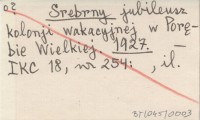 Srebrny jubileusz
kolonji wakacyjnej w Porę-
bie Wielkiej. 1927. —
IKC 18, nr 254. , il.